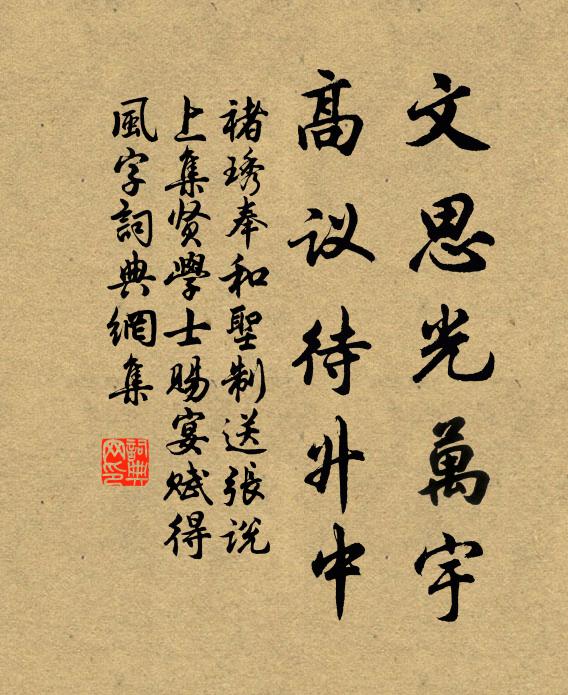 文思光萬宇
高议待升中
褚琇奉和聖制送張说
上集贤學士賜宴赋得
風字詞典網集
詞典
网印